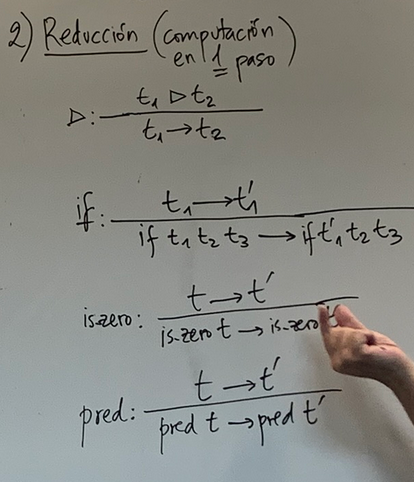 2) Reducción (computación
en 1 paso)
t₁ ▷ t₂
▷:
t₁ → t₂
t₁ → t₁'
if:
if t₁ t₂ t₃ → if t₁' t₂ t₃
t → t'
is-zero:
is-zero t → is-zero
t → t'
pred:
pred t → pred t'